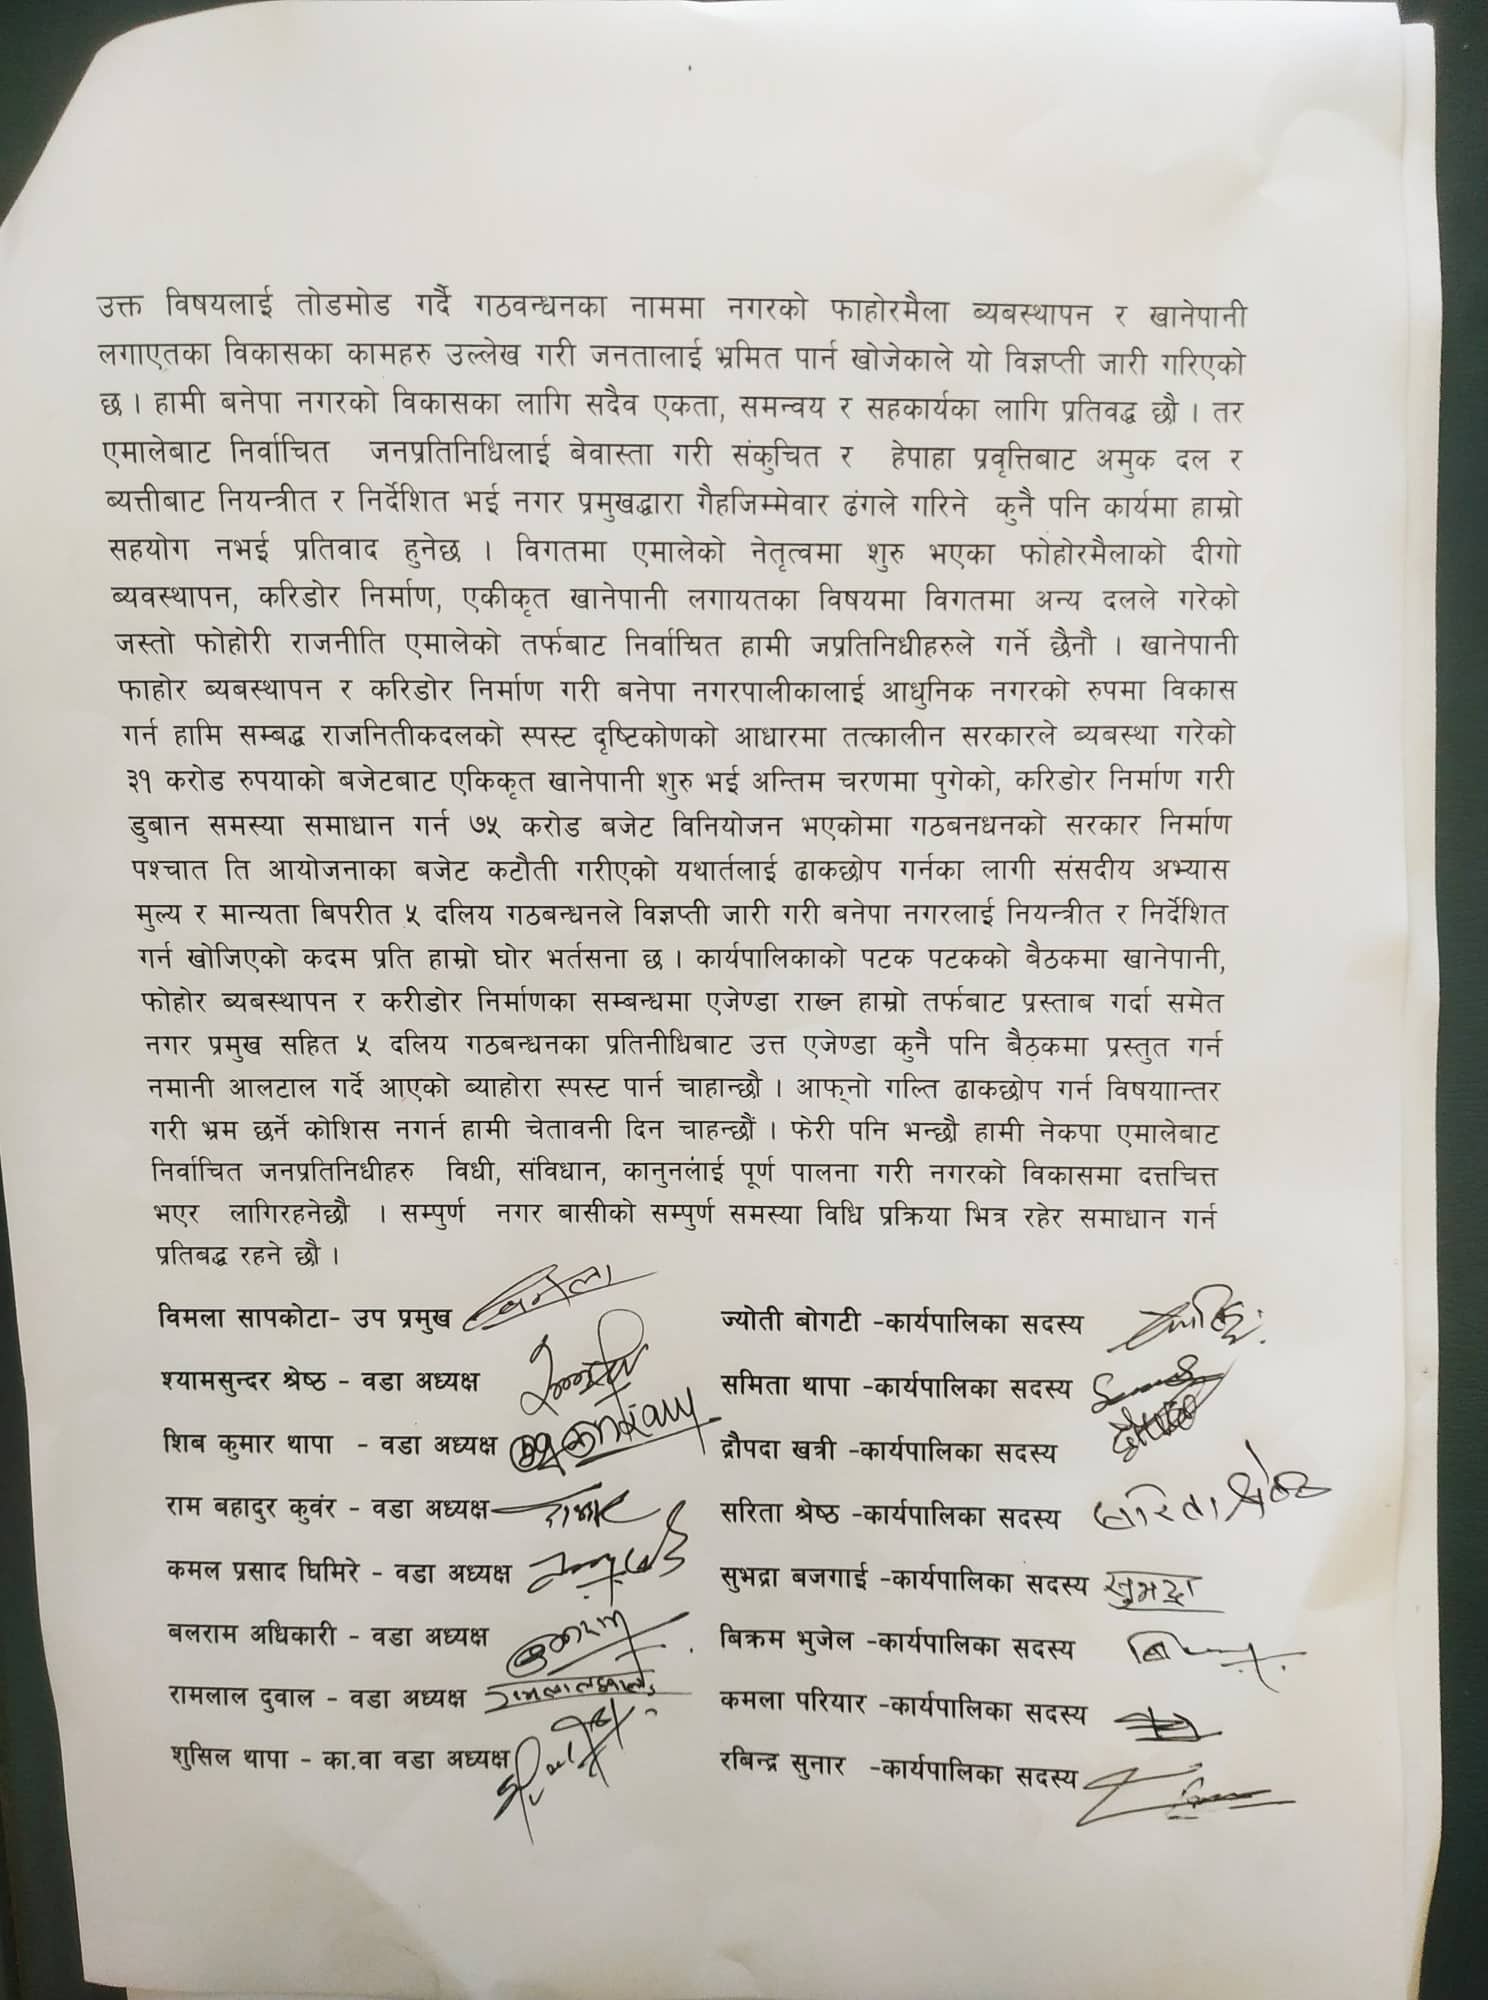 उक्त विषयलाई तोडमोड गर्दै गठवन्धनका नाममा नगरको फाहोरमैला ब्यबस्थापन र खानेपानी
लगाएतका विकासका कामहरु उल्लेख गरी जनतालाई भ्रमित पार्न खोजेकाले यो विज्ञप्ती जारी गरिएको
छ । हामी बनेपा नगरको विकासका लागि सदैव एकता, समन्वय र सहकार्यका लागि प्रतिवद्ध छौ । तर
एमालेबाट निर्वाचित जनप्रतिनिधिलाई बेवास्ता गरी संकुचित र हेपाहा प्रवृत्तिबाट अमुक दल र
ब्यत्तीबाट नियन्त्रीत र निर्देशित भई नगर प्रमुखद्धारा गैह्रजिम्मेवार ढंगले गरिने कुनै पनि कार्यमा हाम्रो
सहयोग नभई प्रतिवाद हुनेछ । विगतमा एमालेको नेतृत्वमा शुरु भएका फोहोरमैलाको दीगो
ब्यवस्थापन, करिडोर निर्माण, एकीकृत खानेपानी लगायतका विषयमा विगतमा अन्य दलले गरेको
जस्तो फोहोरी राजनीति एमालेको तर्फबाट निर्वाचित हामी जप्रतिनिधीहरुले गर्ने छैनौ । खानेपानी
फाहोर ब्यबस्थापन र करिडोर निर्माण गरी बनेपा नगरपालीकालाई आधुनिक नगरको रुपमा विकास
गर्न हामि सम्बद्ध राजनितीकदलको स्पस्ट दृष्टिकोणको आधारमा तत्कालीन सरकारले ब्यबस्था गरेको
३१ करोड रुपयाको बजेटबाट एकिकृत खानेपानी शुरु भई अन्तिम चरणमा पुगेको, करिडोर निर्माण गरी
डुबान समस्या समाधान गर्न ७५ करोड बजेट विनियोजन भएकोमा गठबनधनको सरकार निर्माण
पश्चात ति आयोजनाका बजेट कटौती गरीएको यथार्तलाई ढाकछोप गर्नका लागी संसदीय अभ्यास
मुल्य र मान्यता बिपरीत ५ दलिय गठबन्धनले विज्ञप्ती जारी गरी बनेपा नगरलाई नियन्त्रीत र निर्देशित
गर्न खोजिएको कदम प्रति हाम्रो घोर भर्तसना छ । कार्यपालिकाको पटक पटकको बैठकमा खानेपानी,
फोहोर ब्यबस्थापन र करीडोर निर्माणका सम्बन्धमा एजेण्डा राख्न हाम्रो तर्फबाट प्रस्ताब गर्दा समेत
नगर प्रमुख सहित ५ दलिय गठबन्धनका प्रतिनीधिबाट उत्त एजेण्डा कुनै पनि बैठकमा प्रस्तुत गर्न
नमानी आलटाल गर्दे आएको ब्याहोरा स्पस्ट पार्न चाहान्छौ । आफ्नो गल्ति ढाकछोप गर्न विषयाान्तर
गरी भ्रम छर्ने कोशिस नगर्न हामी चेतावनी दिन चाहन्छौं । फेरी पनि भन्छौ हामी नेकपा एमालेबाट
निर्वाचित जनप्रतिनिधीहरु विधी, संविधान, कानुनलाई पूर्ण पालना गरी नगरको विकासमा दत्तचित्त
भएर लागिरहनेछौ । सम्पुर्ण नगर बासीको सम्पुर्ण समस्या विधि प्रक्रिया भित्र रहेर समाधान गर्न
प्रतिबद्ध रहने छौ ।
विमला सापकोटा- उप प्रमुख विमला ज्योती बोगटी -कार्यपालिका सदस्य
श्यामसुन्दर श्रेष्ठ - वडा अध्यक्ष समिता थापा -कार्यपालिका सदस्य
शिब कुमार थापा - वडा अध्यक्ष द्रौपदा खत्री -कार्यपालिका सदस्य
राम बहादुर कुवंर - वडा अध्यक्ष सरिता श्रेष्ठ -कार्यपालिका सदस्य सरिता श्रेष्ठ
कमल प्रसाद घिमिरे - वडा अध्यक्ष सुभद्रा बजगाई -कार्यपालिका सदस्य सुभद्रा
बलराम अधिकारी - वडा अध्यक्ष बिक्रम भुजेल -कार्यपालिका सदस्य
रामलाल दुवाल - वडा अध्यक्ष कमला परियार -कार्यपालिका सदस्य
शुसिल थापा - का.वा वडा अध्यक्ष रबिन्द्र सुनार -कार्यपालिका सदस्य